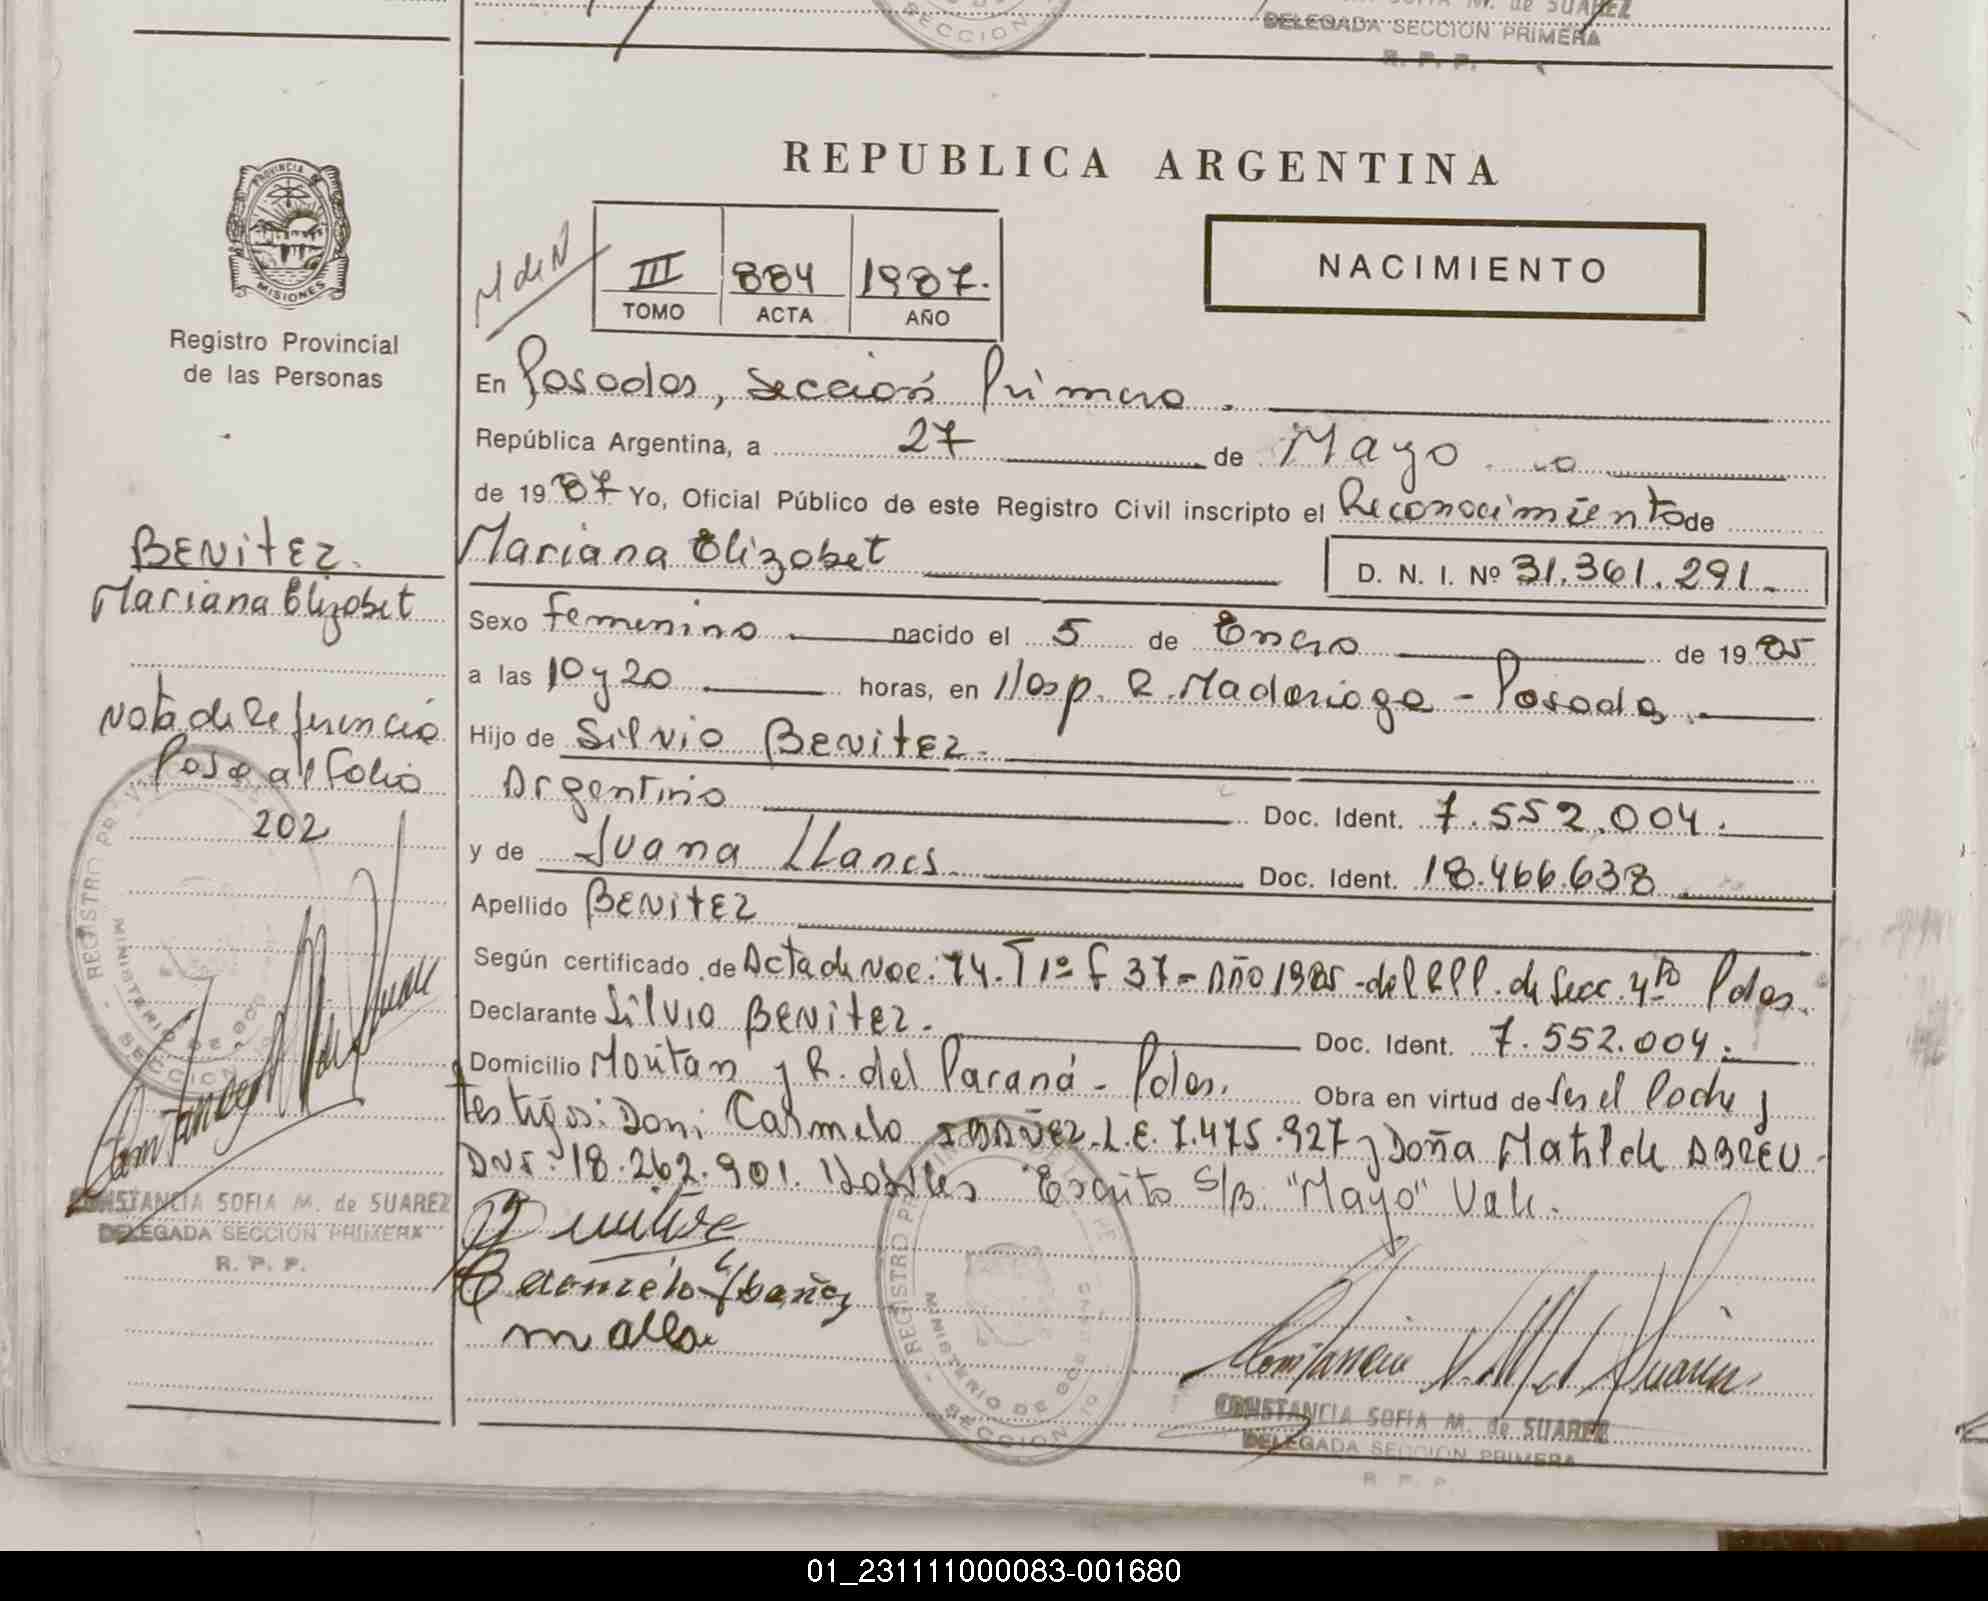 DELEGADA SECCION PRIMERA
R. P. P.
REPUBLICA ARGENTINA
PROVINCIA DE
MISIONES
Registro Provincial
de las Personas
M de N
III 884 1987.
TOMO ACTA AÑO
NACIMIENTO
En Posadas, Sección Primera.
República Argentina, a 27 de Mayo
de 1987 Yo, Oficial Público de este Registro Civil inscripto el Reconocimiento de
Mariana Elizabet D. N. I. Nº 31.361.291.-
Sexo femenino nacido el 5 de Enero de 1985
a las 10 y 20 horas, en Hosp. R. Madariaga - Posadas.
Hijo de Silvio BENITEZ.
Argentino Doc. Ident. 7.552.004.
y de Juana LLanes. Doc. Ident. 18.466.638
Apellido BENITEZ
Según certificado de Acta de Nac. 74. T 1º F 37 - Año 1985 - del RPP. de Secc. 4ta Pdas.
Declarante Silvio BENITEZ. Doc. Ident. 7.552.004.
Domicilio Moritan y R. del Paraná - Pdas. Obra en virtud de ser el Padre y
testigos: Don: Carmelo IBAÑEZ. L.E. 7.475.927 y Doña Matilde ABREU
DNI: 18.262.901. Habiles Escrito S/B. "Mayo" Vale.
Carmelo Ibañez
CONSTANCIA SOFIA M. de SUAREZ
DELEGADA SECCION PRIMERA
R. P. P.
BENITEZ.
Mariana Elizabet
Nota de Referencia
Pasa al Folio
202
CONSTANCIA SOFIA M. de SUAREZ
DELEGADA SECCION PRIMERA
R. P. P.
01_231111000083-001680